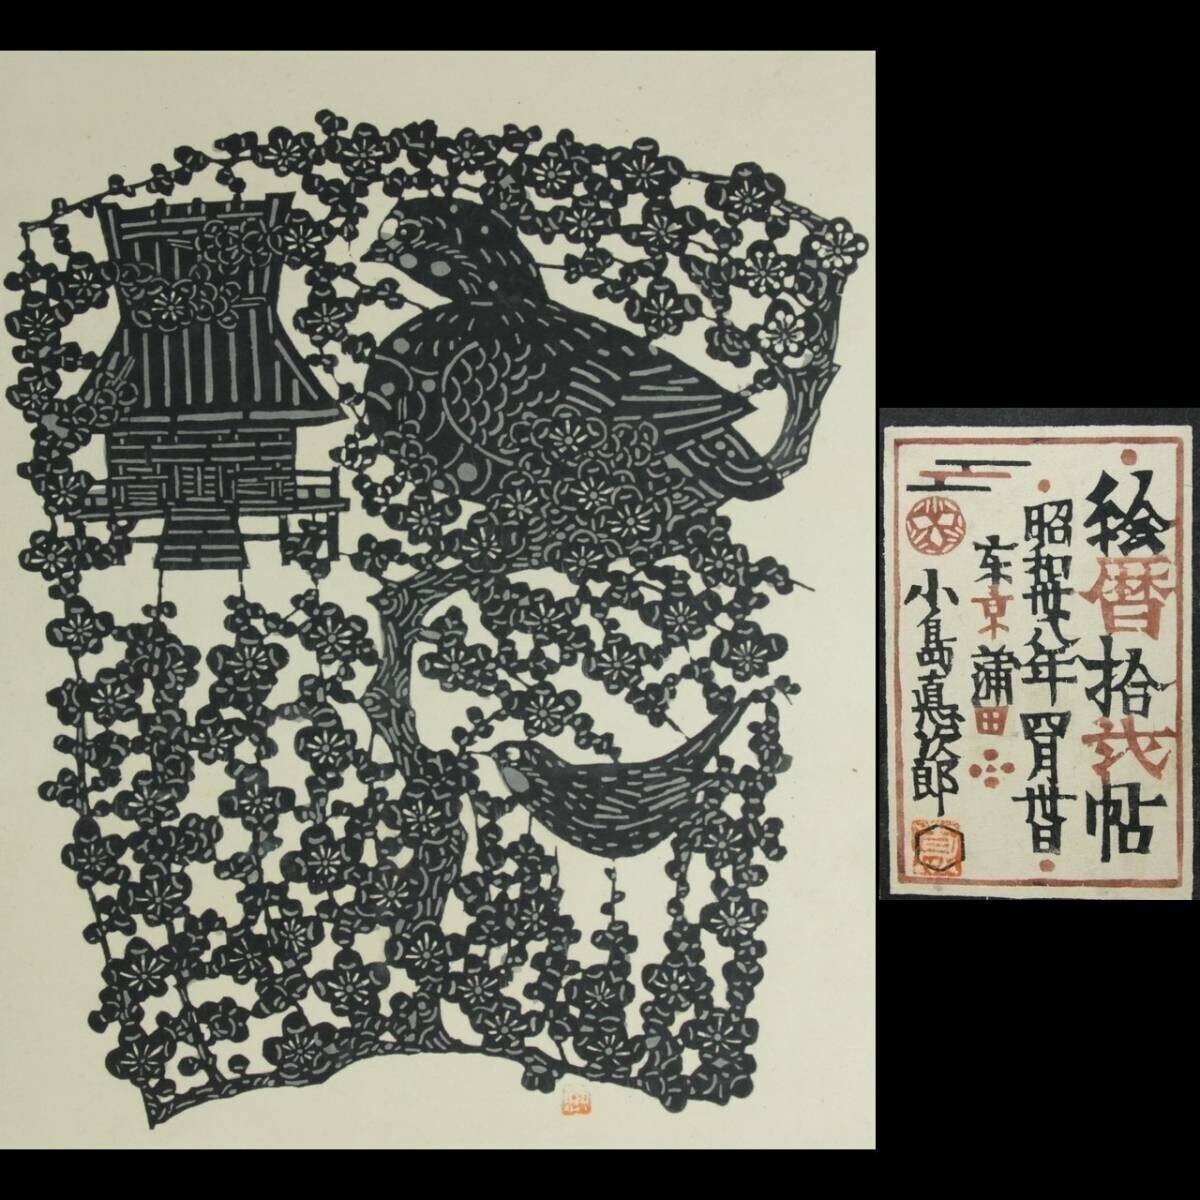 絵暦拾弐帖
昭和卅八年四月卅日
東京蒲田
小島悳次郎